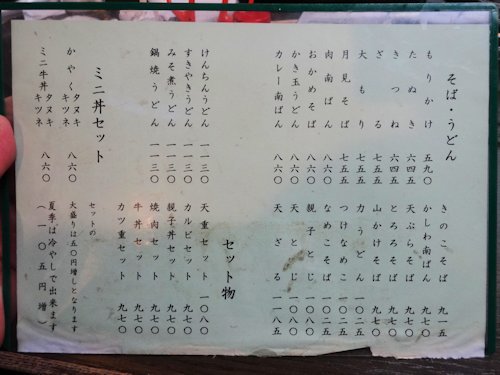 そば・うどん
もりかけ 五九〇
たぬき 六四五
きつね 六四五
ざる 七五五
大もり 七五五
月見そば 七五五
肉南ばん 八六〇
おかめそば 八六〇
かき玉うどん 八六〇
カレー南ばん 八六〇
きのこそば 九一五
かしわ南ばん 九七〇
天ぷらそば 九七〇
とろろそば 九七〇
山かけそば 九七〇
力うどん 一〇二五
つけなめこ 一〇二五
なめこそば 一〇二五
親子とじ 一〇八〇
天とじ 一〇八〇
天ざる 一一八五
けんちんうどん 一一三〇
すきやきうどん 一一三〇
みそ煮うどん 一一三〇
鍋焼うどん 一一三〇
セット物
天重セット 一〇八〇
カルビセット 九七〇
親子丼セット 九七〇
焼肉セット 九七〇
牛丼セット 九七〇
カツ重セット 九七〇
ミニ丼セット
かやく タヌキ キツネ 八六〇
ミニ牛丼 タヌキ キツネ 八六〇
セットの
大盛りは五〇円増しとなります
夏季は冷やしで出来ます
(一〇五円増)